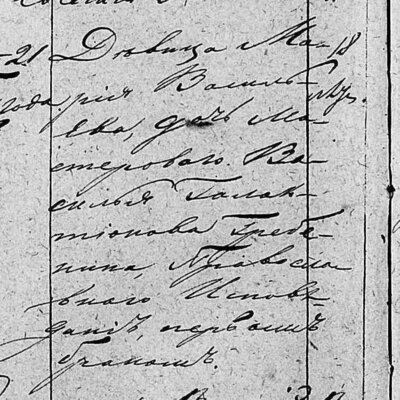 21 Дѣвица Ма- 18
года рiя Василь- лѣт.
ева, дочь Ма-
стероваго Ва-
силья Галак-
тiонова Гребе-
нина, Православ-
наго Исповѣ-
данiя, первымъ
бракомъ.